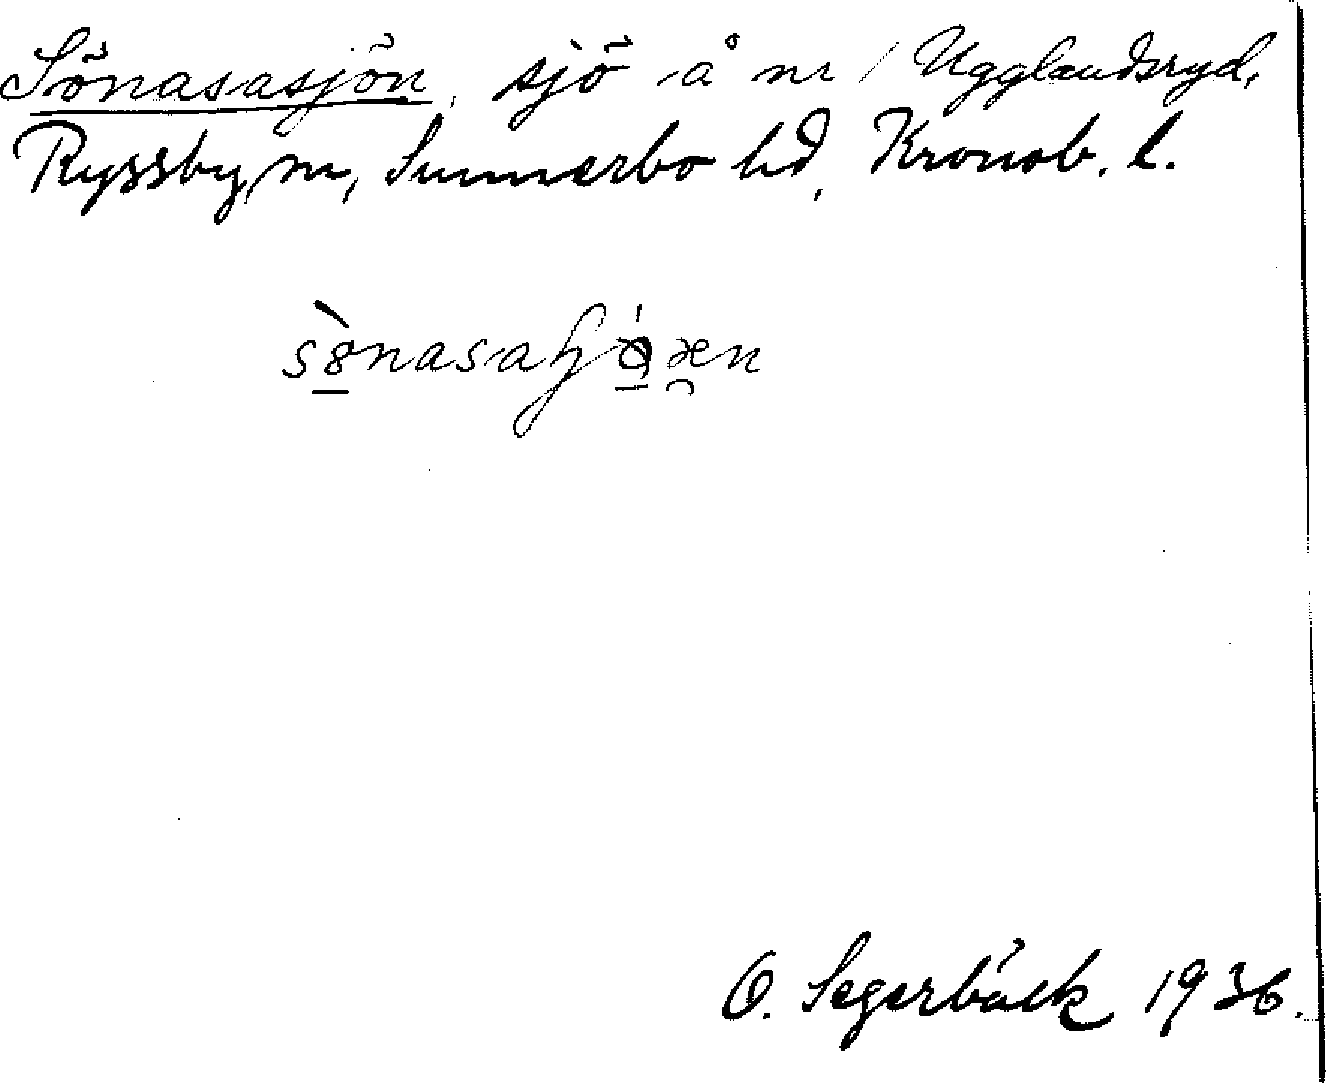 Sönasasjön, sjö å nr / Ugglandsryd,
Ryssby sn, Sunnerbo hd, Kronob. l.
O. Segerbäck 1936.